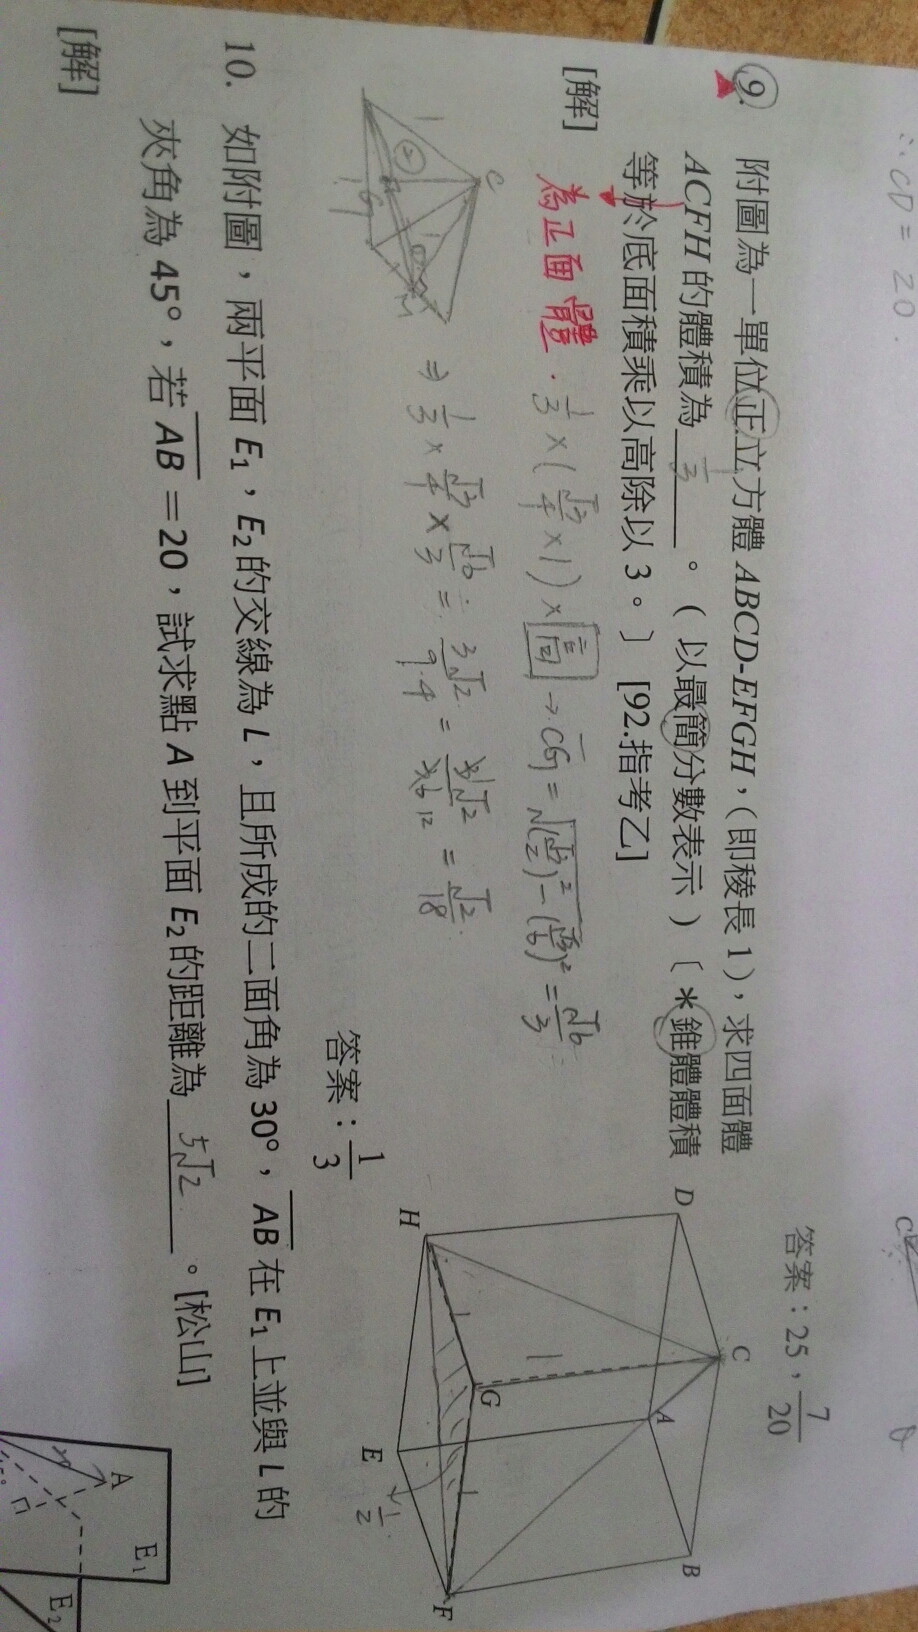 ∴CD = 20.
答案：25，7/20
9. 附圖為一單位正立方體 ABCD-EFGH，（即稜長 1），求四面體
ACFH 的體積為 1/3 。（以最簡分數表示）〔＊錐體體積
等於底面積乘以高除以 3。〕 [92.指考乙]
[解]
為正四面體.
1/3 × (√3/4 × 1) × 高 → CG = √((√3/2)² - (√3/6)²) = √6/3
⇒ 1/3 × √3/4 × √6/3 = 3√2/9·4 = = √2/18
C
1
G
M
D
C
B
A
H
G
E
F
1
1
1
1/2
答案：1/3
10. 如附圖，兩平面 E₁，E₂的交線為 L，且所成的二面角為 30°，AB 在 E₁上並與 L 的
夾角為 45°，若 AB＝20，試求點 A 到平面 E₂的距離為 5√2 。[松山]
[解]
A
E₁
E₂